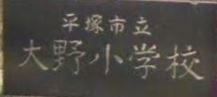 平塚市立
大野小学校